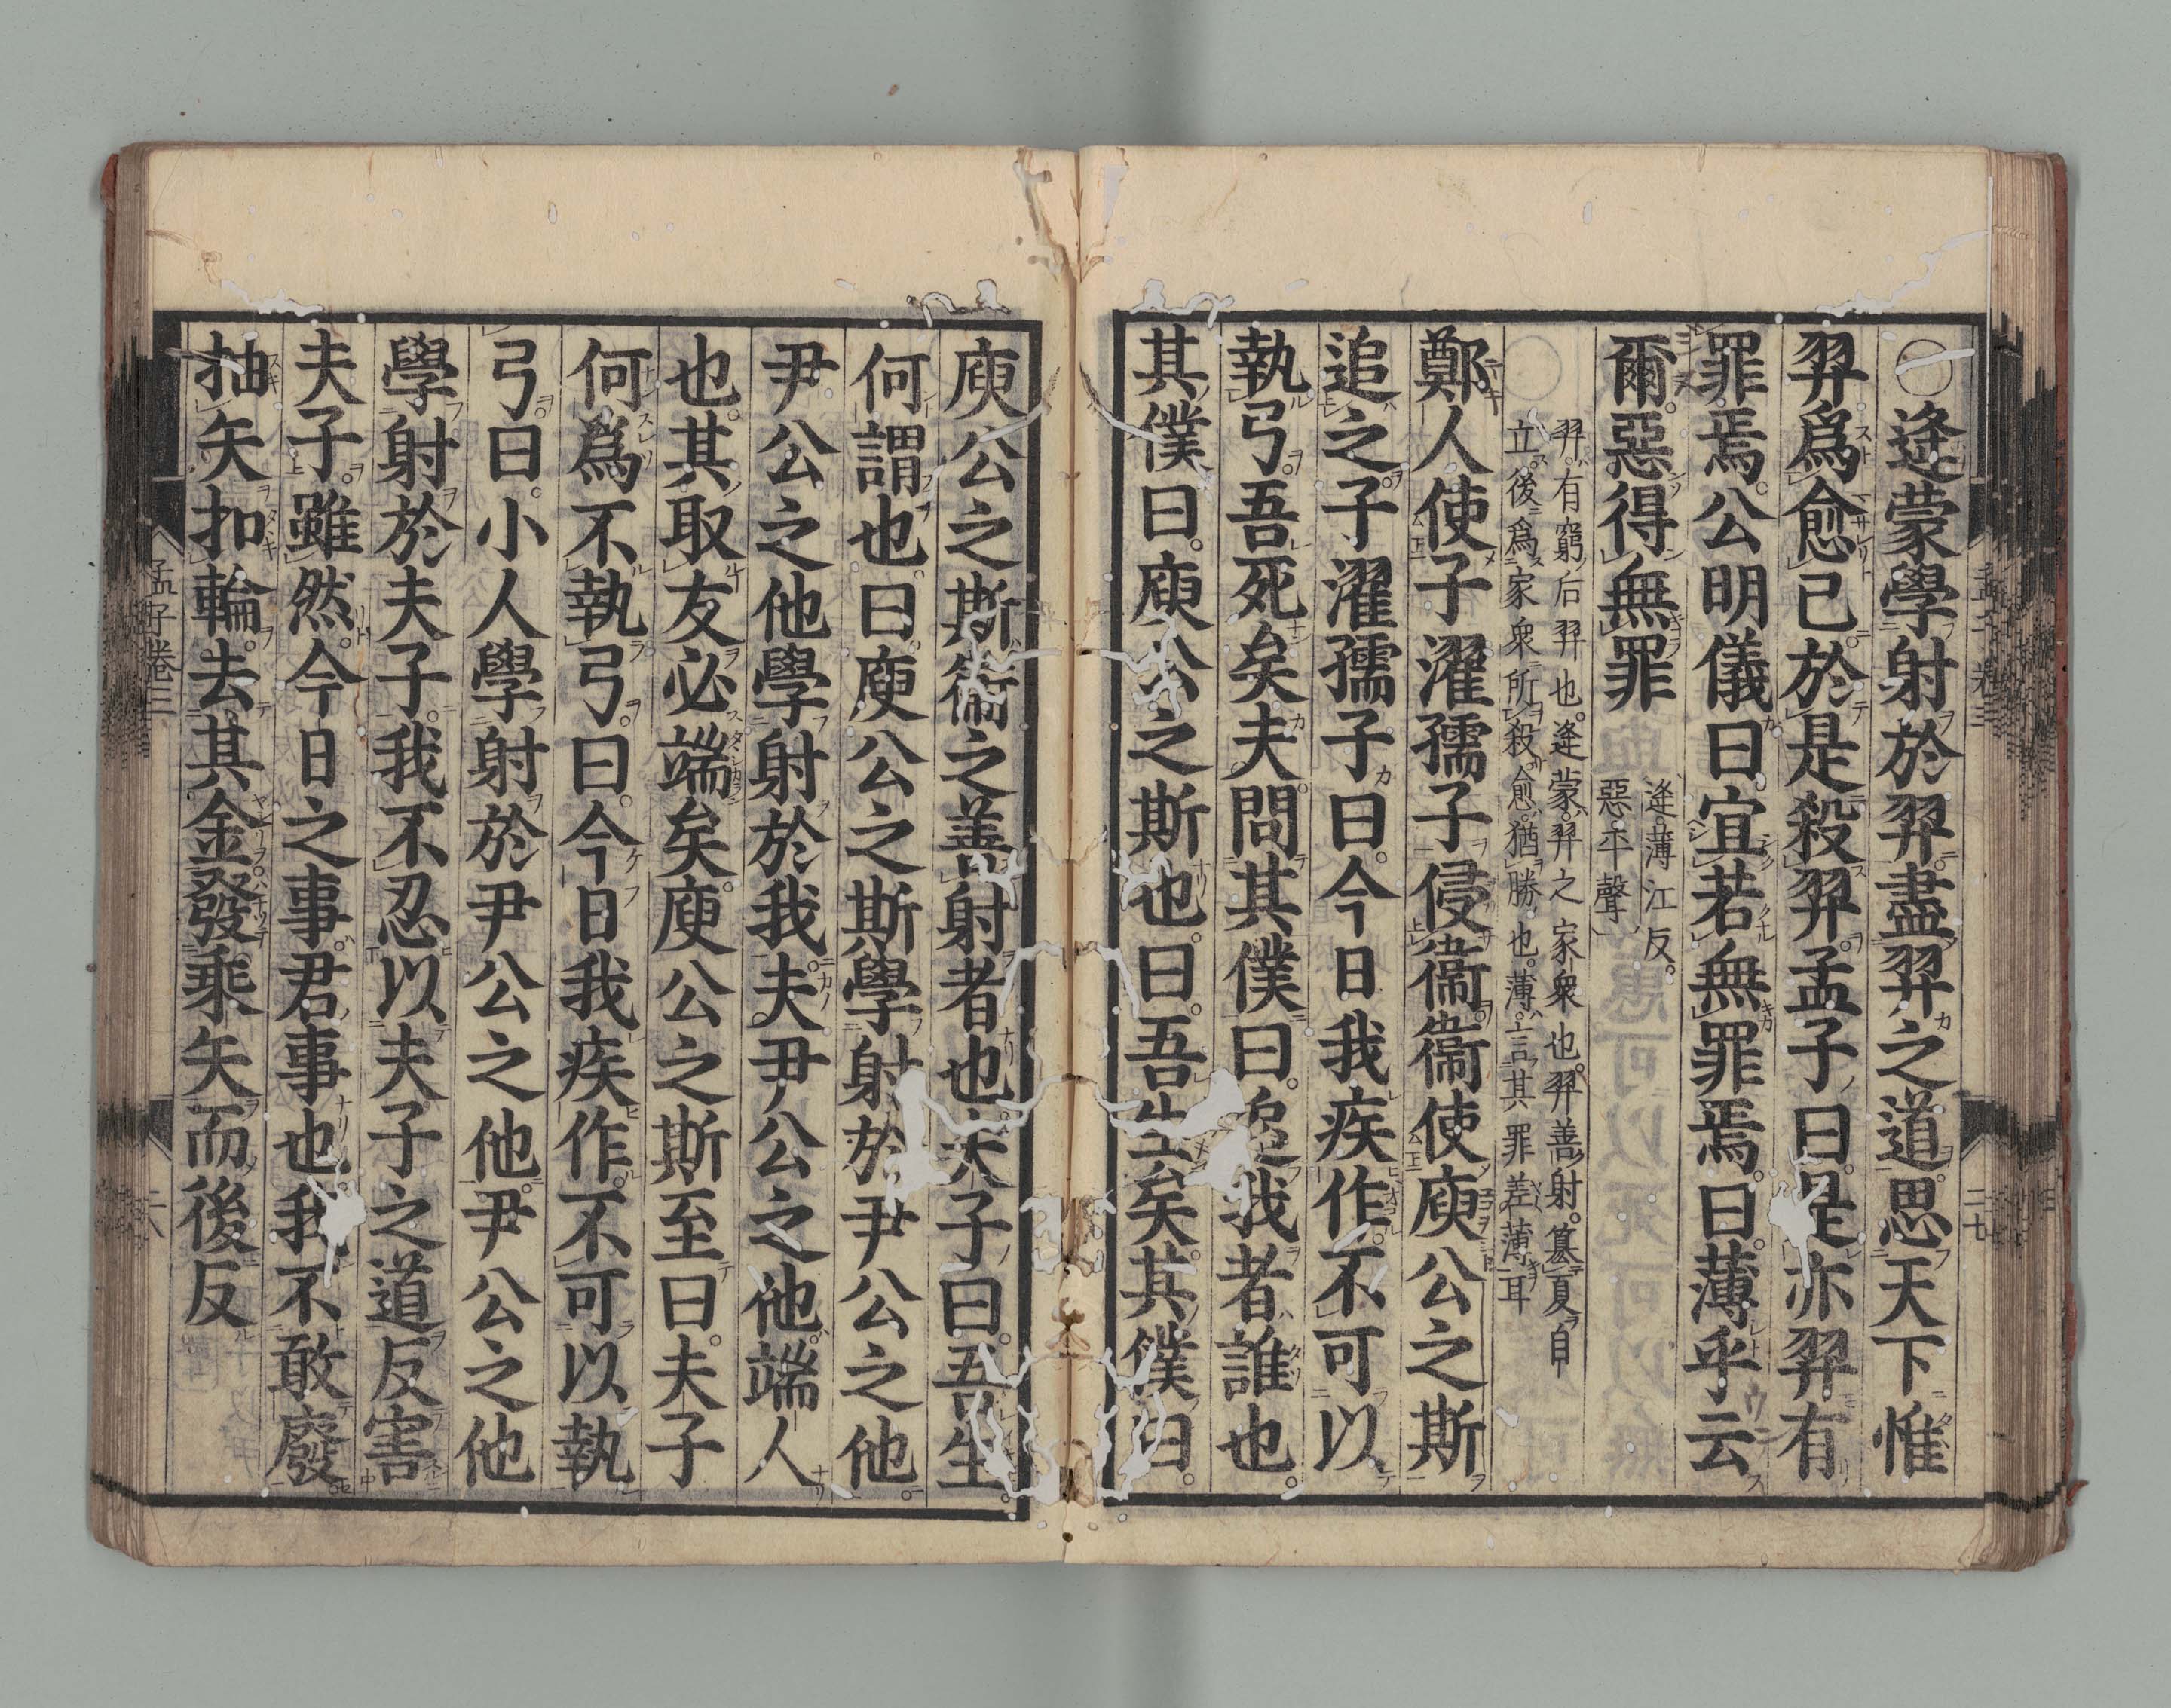 ○逄蒙學射於羿盡羿之道思天下惟
羿爲愈已於是殺羿孟子曰是亦羿有
罪焉公明儀曰宜若無罪焉曰薄乎云
爾惡得無罪
逄薄江反
惡平聲
羿有窮后羿也逄蒙羿之家衆也羿善射簒夏自
○立後爲家衆所殺愈猶勝也薄言其罪差薄耳
鄭人使子濯孺子侵衞衞使庾公之斯
追之子濯孺子曰今日我疾作不可以
執弓吾死矣夫問其僕曰追我者誰也
其僕曰庾公之斯也曰吾生矣其僕曰
庾公之斯衞之善射者也夫子曰吾生
何謂也曰庾公之斯學射於尹公之他
尹公之他學射於我夫尹公之他端人
也其取友必端矣庾公之斯至曰夫子
何爲不執弓曰今日我疾作不可以執
弓曰小人學射於尹公之他尹公之他
學射於夫子我不忍以夫子之道反害
夫子雖然今日之事君事也我不敢廢
抽矢扣輪去其金發乘矢而後反
孟子卷三
二七
孟子卷三